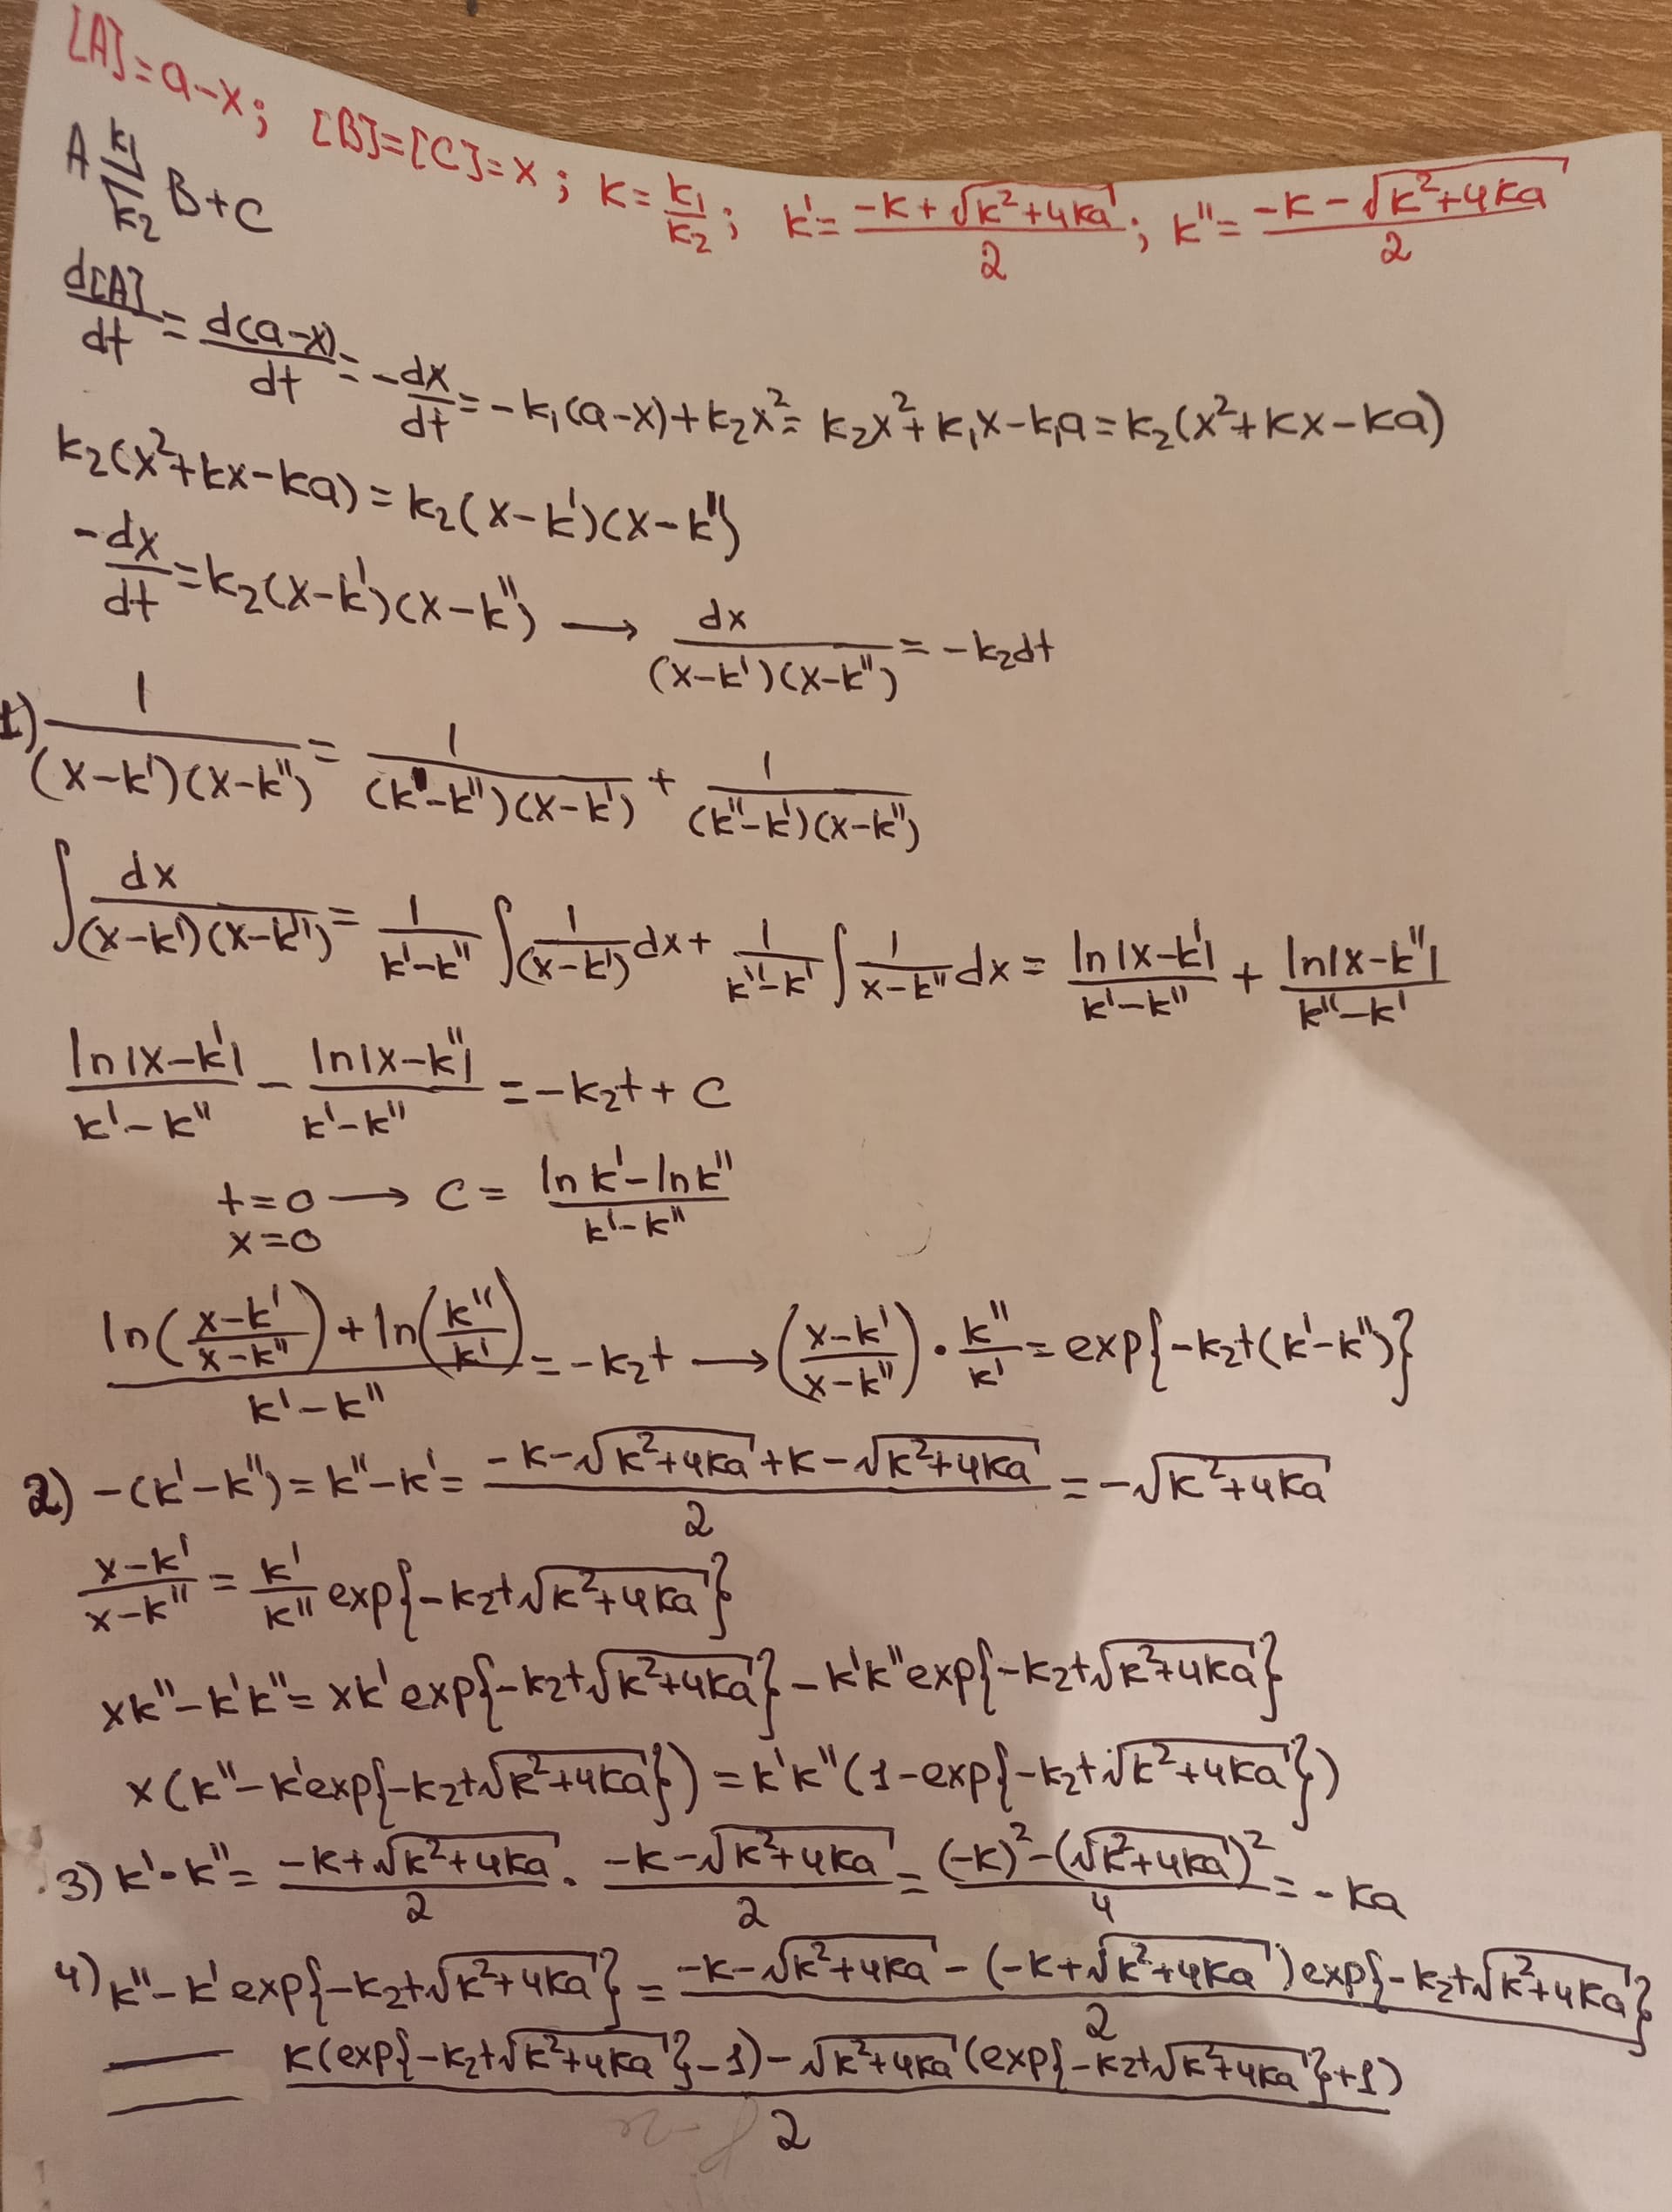 [A]=a-x; [B]=[C]=x; K=k₁/k₂; k'=(-K+√(K²+4Ka))/2; k''=(-K-√(K²+4Ka))/2
A ⇄ B+C (k₁, k₂)
d[A]/dt = d(a-x)/dt = -dx/dt = -k₁(a-x)+k₂x² = k₂x²+k₁x-k₁a = k₂(x²+Kx-Ka)
k₂(x²+Kx-Ka) = k₂(x-k')(x-k'')
-dx/dt = k₂(x-k')(x-k'') → dx/((x-k')(x-k'')) = -k₂dt
1) 1/((x-k')(x-k'')) = 1/((k'-k'')(x-k')) + 1/((k''-k')(x-k''))
∫dx/((x-k')(x-k'')) = 1/(k'-k'') ∫1/(x-k') dx + 1/(k''-k') ∫1/(x-k'') dx = ln|x-k'|/(k'-k'') + ln|x-k''|/(k''-k')
ln|x-k'|/(k'-k'') - ln|x-k''|/(k'-k'') = -k₂t + C
t=0 → C = (ln k' - ln k'')/(k'-k'')
x=0
(ln((x-k')/(x-k'')) + ln(k''/k'))/(k'-k'') = -k₂t → ((x-k')/(x-k''))·k''/k' = exp{-k₂t(k'-k'')}
2) -(k'-k'') = k''-k' = (-K-√(K²+4Ka)+K-√(K²+4Ka))/2 = -√(K²+4Ka)
(x-k')/(x-k'') = k'/k'' exp{-k₂t√(K²+4Ka)}
xk''-k'k'' = xk' exp{-k₂t√(K²+4Ka)} - k'k'' exp{-k₂t√(K²+4Ka)}
x(k''-k'exp{-k₂t√(K²+4Ka)}) = k'k''(1-exp{-k₂t√(K²+4Ka)})
3) k'·k'' = (-K+√(K²+4Ka))/2 · (-K-√(K²+4Ka))/2 = ((-K)²-(√(K²+4Ka))²)/4 = -Ka
4) k''-k' exp{-k₂t√(K²+4Ka)} = (-K-√(K²+4Ka) - (-K+√(K²+4Ka)) exp{-k₂t√(K²+4Ka)})/2
= (K(exp{-k₂t√(K²+4Ka)}-1) - √(K²+4Ka)(exp{-k₂t√(K²+4Ka)}+1))/2